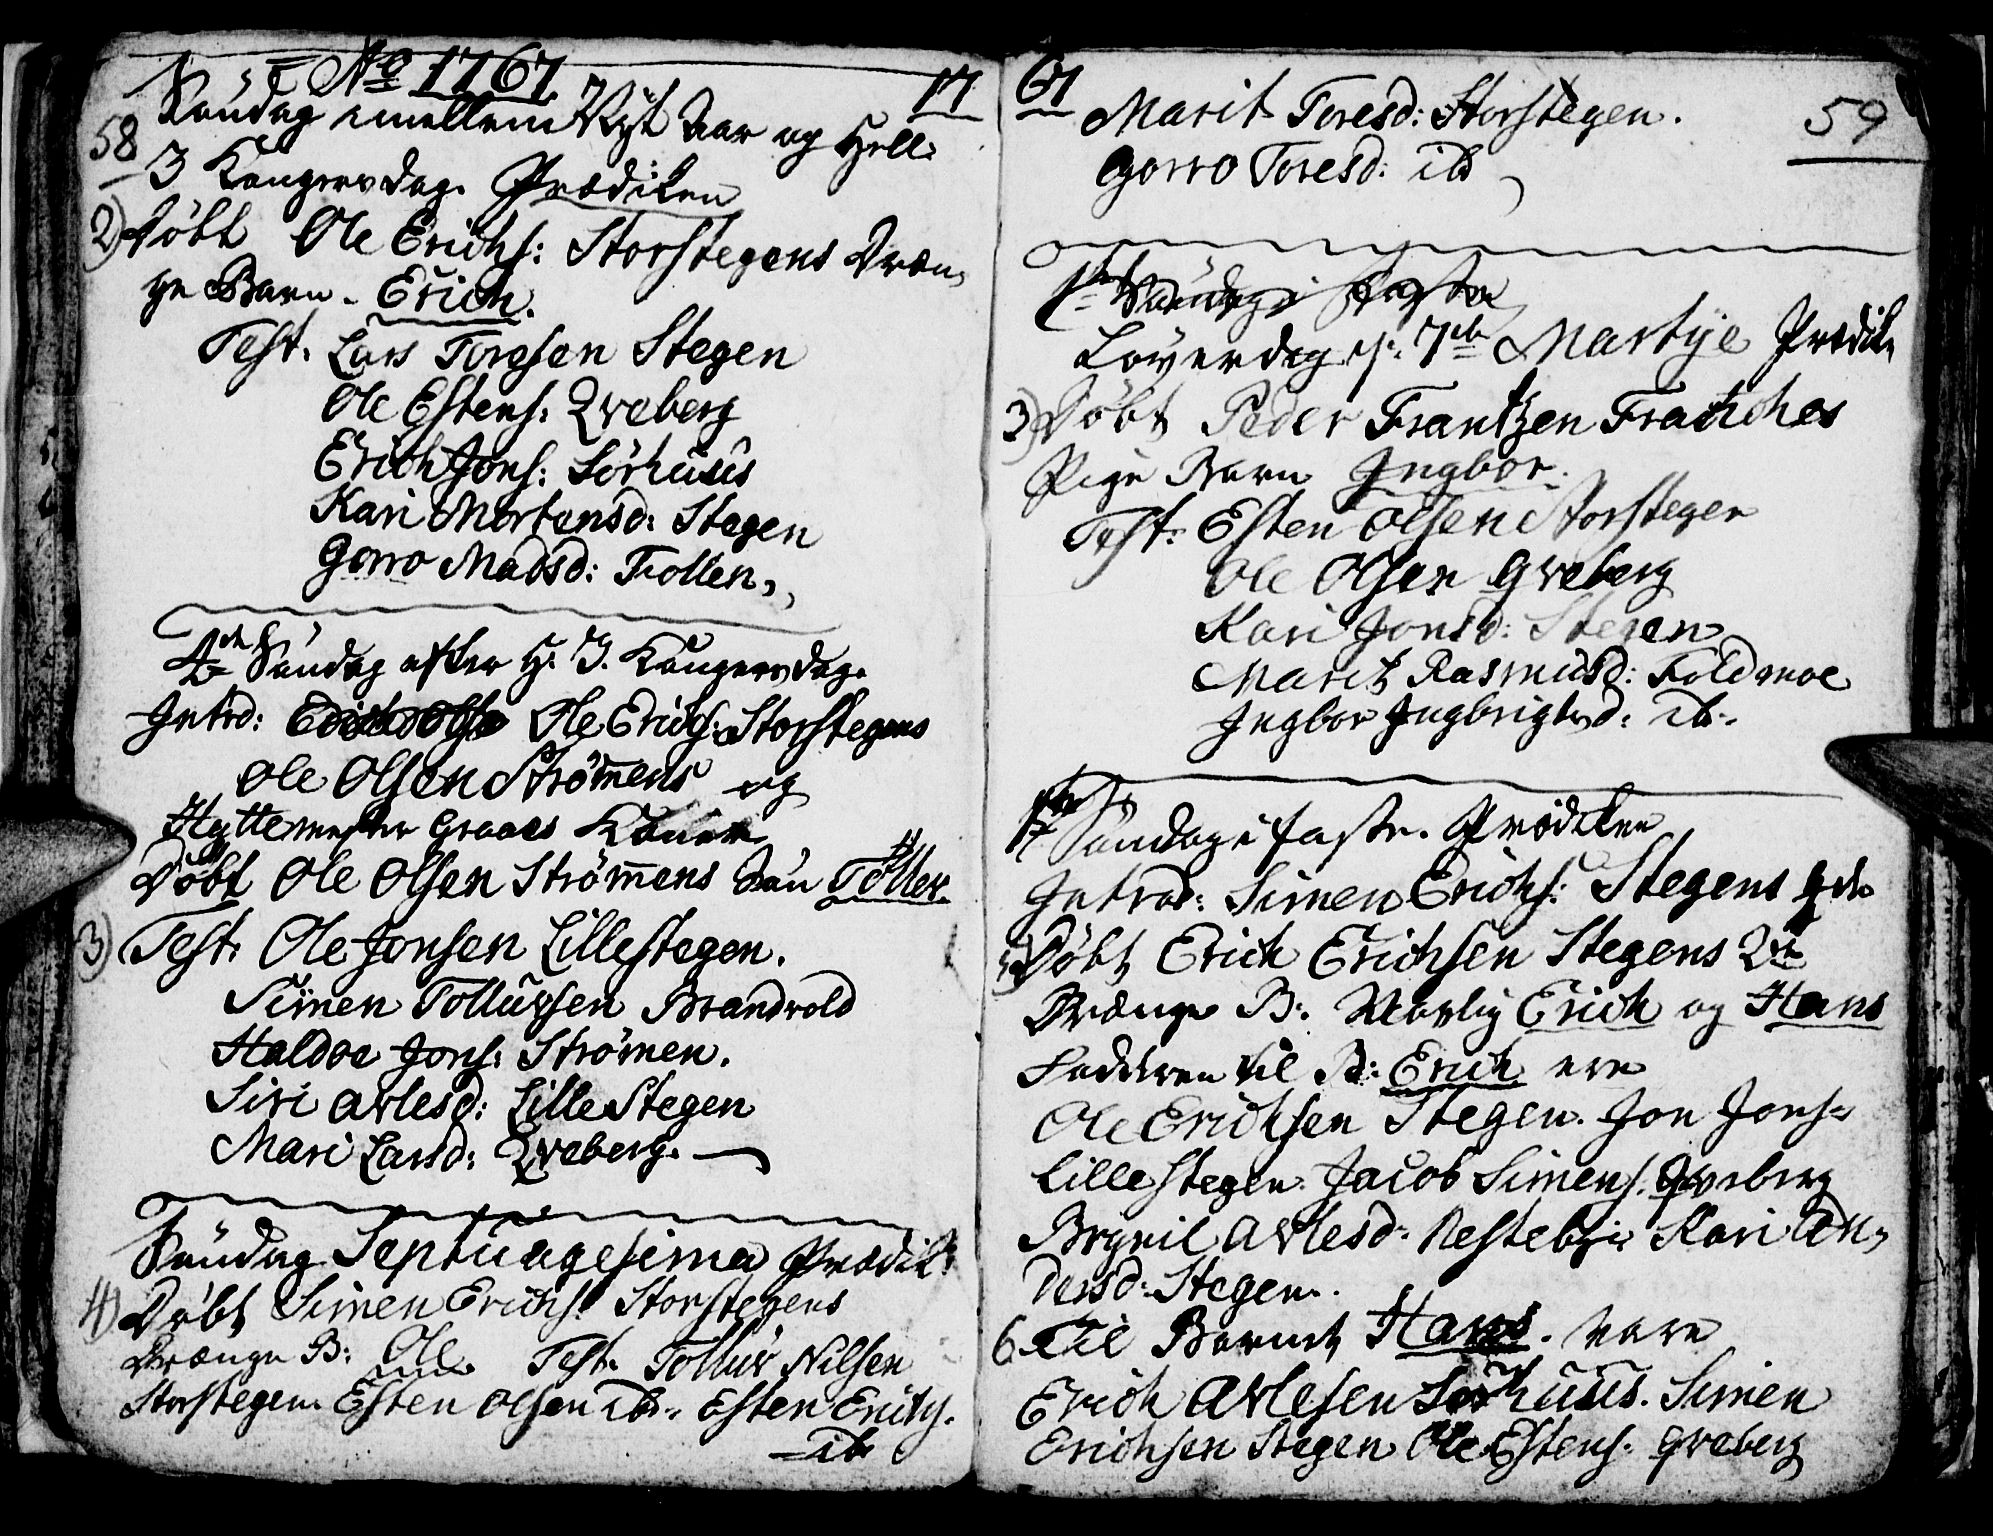 No 1767. 17
58
Søndag imellem Nyt Aar og Hell:
3 Kongersdag. Prædiken
2) Døbt Ole Erichs: Storstegens Dræn,
ge Barn. Erich.
Test. Lars Toresen Stegen
Ole Estens: Qveberg
Erich Jons: Sörhuus
Kari Mortensd: Stegen
Gorro Madsd: Trollen,
4de Søndag efter H. 3. Kongersdag.
Introd: Ole Erichs: Storstegens
Ole Olsen Strömens og
Hyttemester Graaes Koner
Döbt Ole Olsen Strömens Søn Toller.
3) Test. Ole Jonsen Lillestegen.
Simen Tollufsen Brandvold
Haldoe Jons: Strömen.
Siri Arlesd: Lille Stegen
Mari Larsd: Qveberg.
Søndag Septuagesima Prædik:
4) Döbt Simen Erichs: Storstegens
Drænge B: Ole. Test. Tolluv Nilsen
Storstegen. Esten Olsen ib. Esten Erichs.
ib
67
59
Marit Toresd: Storstegen.
Gorro Toresd: ib
1ste Søndag i Faste
Löverdag d: 7de Martÿe Prædik.
3) Döbt Peder Frantzen Fraüches
Pige Barn Ingbor.
Test: Esten Olsen Storstegen
Ole Olsen Qveberg
Kari Jonsd: Stegen
Marit Rasmusd: Foldmoe
Ingbor Ingbrigtsd: ib.
1ste Søndag i Faste. Prædiken
Introd: Simen Erichs: Stegens
Döbt Erich Erichsen Stegens 2de
Drænge B: Navnlig Erich og Hans
Fadderen til B: Erich ere
Ole Erichsen Stegen. Jon Jons:
Lille Stegen. Jacob Simens. Qveberg
Brynil Arlesd. Kari An,
dersd: Stegen.
6. Til Barnet Hans. vare
Erich Arlesen Sörhuus. Simen
Erichsen Stegen Ole Estens. Qveberg